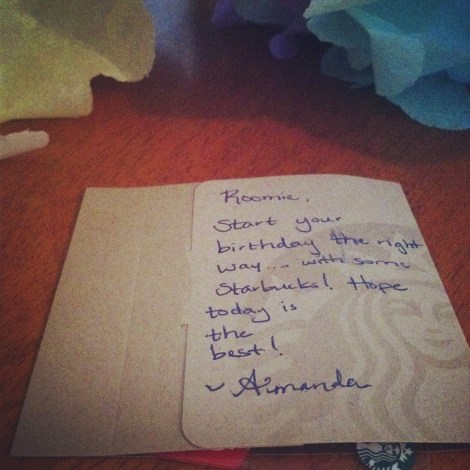 Roomie,
Start your
birthday the right
way.... with some
Starbucks! Hope
today is
the
best!
Amanda